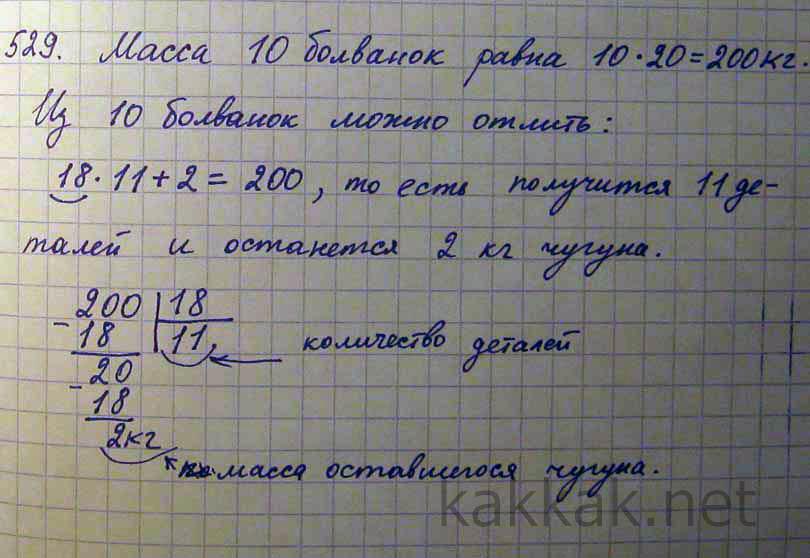 529. Масса 10 болванок равна 10·20=200кг.
Из 10 болванок можно отлить:
18·11+2=200, то есть получится 11 де-
талей и останется 2 кг чугуна.
200 18
- 18 11, количество деталей
20
- 18
2кг
масса оставшегося чугуна.
kakkak.net